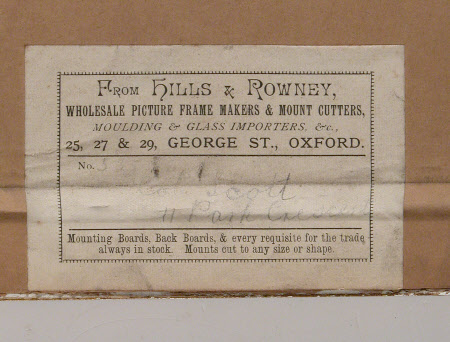 From Hills & Rowney,
WHOLESALE PICTURE FRAME MAKERS & MOUNT CUTTERS,
MOULDING & GLASS IMPORTERS, &c.,
25, 27 & 29, GEORGE ST., OXFORD.
No.
Scott
11 Park Crescent
Mounting Boards, Back Boards, & every requisite for the trade
always in stock. Mounts cut to any size or shape.